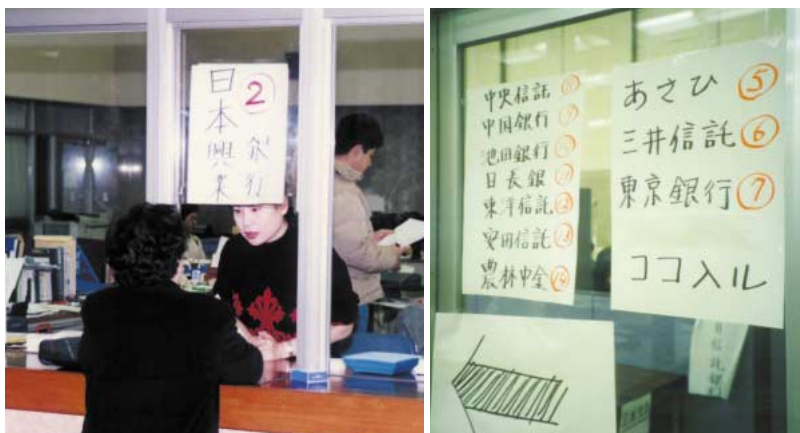 ②
日本興業
銀行
中央信託⑧
中国銀行⑨
池田銀行⑩
日長銀⑪
東洋信託⑫
安田信託⑬
農林中金⑭
あさひ⑤
三井信託⑥
東京銀行⑦
ココ入ル